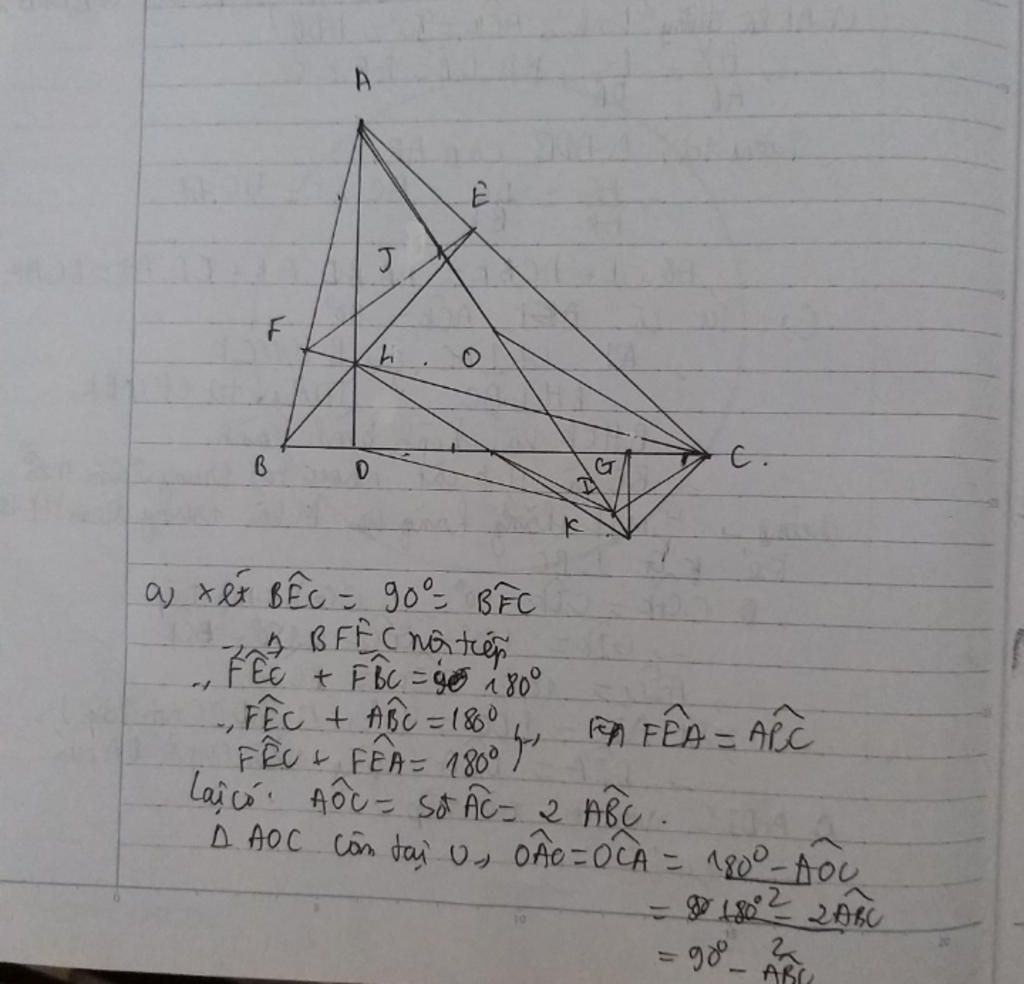 A
E
J
F
H
O
B
D
G
C.
I
K
a, xét BÊC = 90° = BF̂C
⇒ BFEC nội tiếp
⇒ FÊC + FB̂C = 180°
⇒ FÊC + AB̂C = 180°
FÊC + FÊA = 180°
⇒ FÊA = AB̂C
Lại có: AÔC = sđ AC = 2 AB̂C.
Δ AOC cân tại O ⇒ OÂC = OĈA = 180° - AÔC
2
= 180° - 2AB̂C
2
= 90° - AB̂C